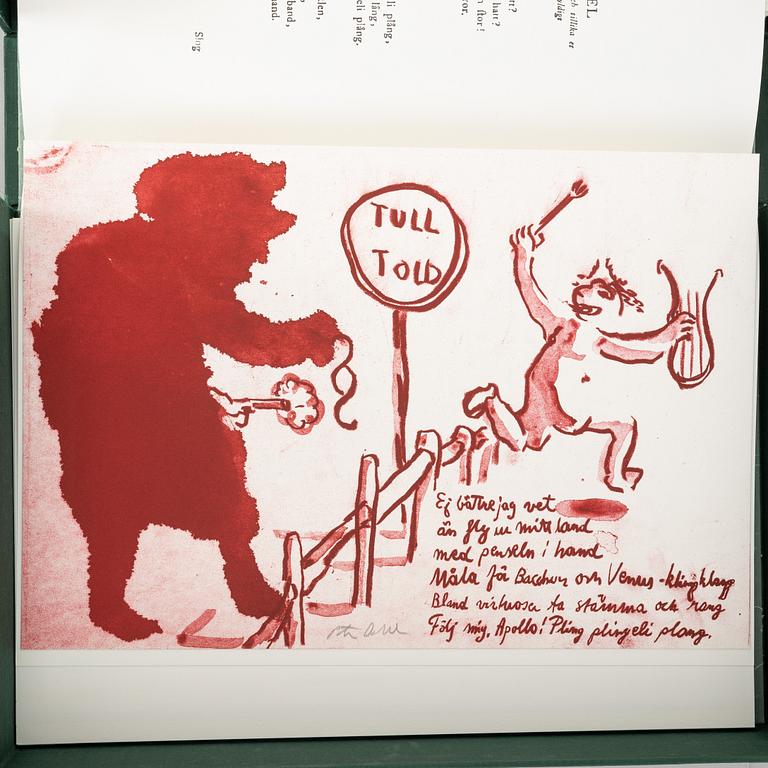 EL
ch tillika er
yldigt
tt?
hatt?
n stor!
ror.
li plång,
lång,
eli plång.
len,
band,
hand.
Slug
TULL
TOLD
Ej bättre jag vet
än fly ur mitt land
med penseln i hand
Måla för Bacchus och Venus - kling klang
Bland virtuosa ta stämma och rang
Följ mig, Apollo! Pling plingeli plang.